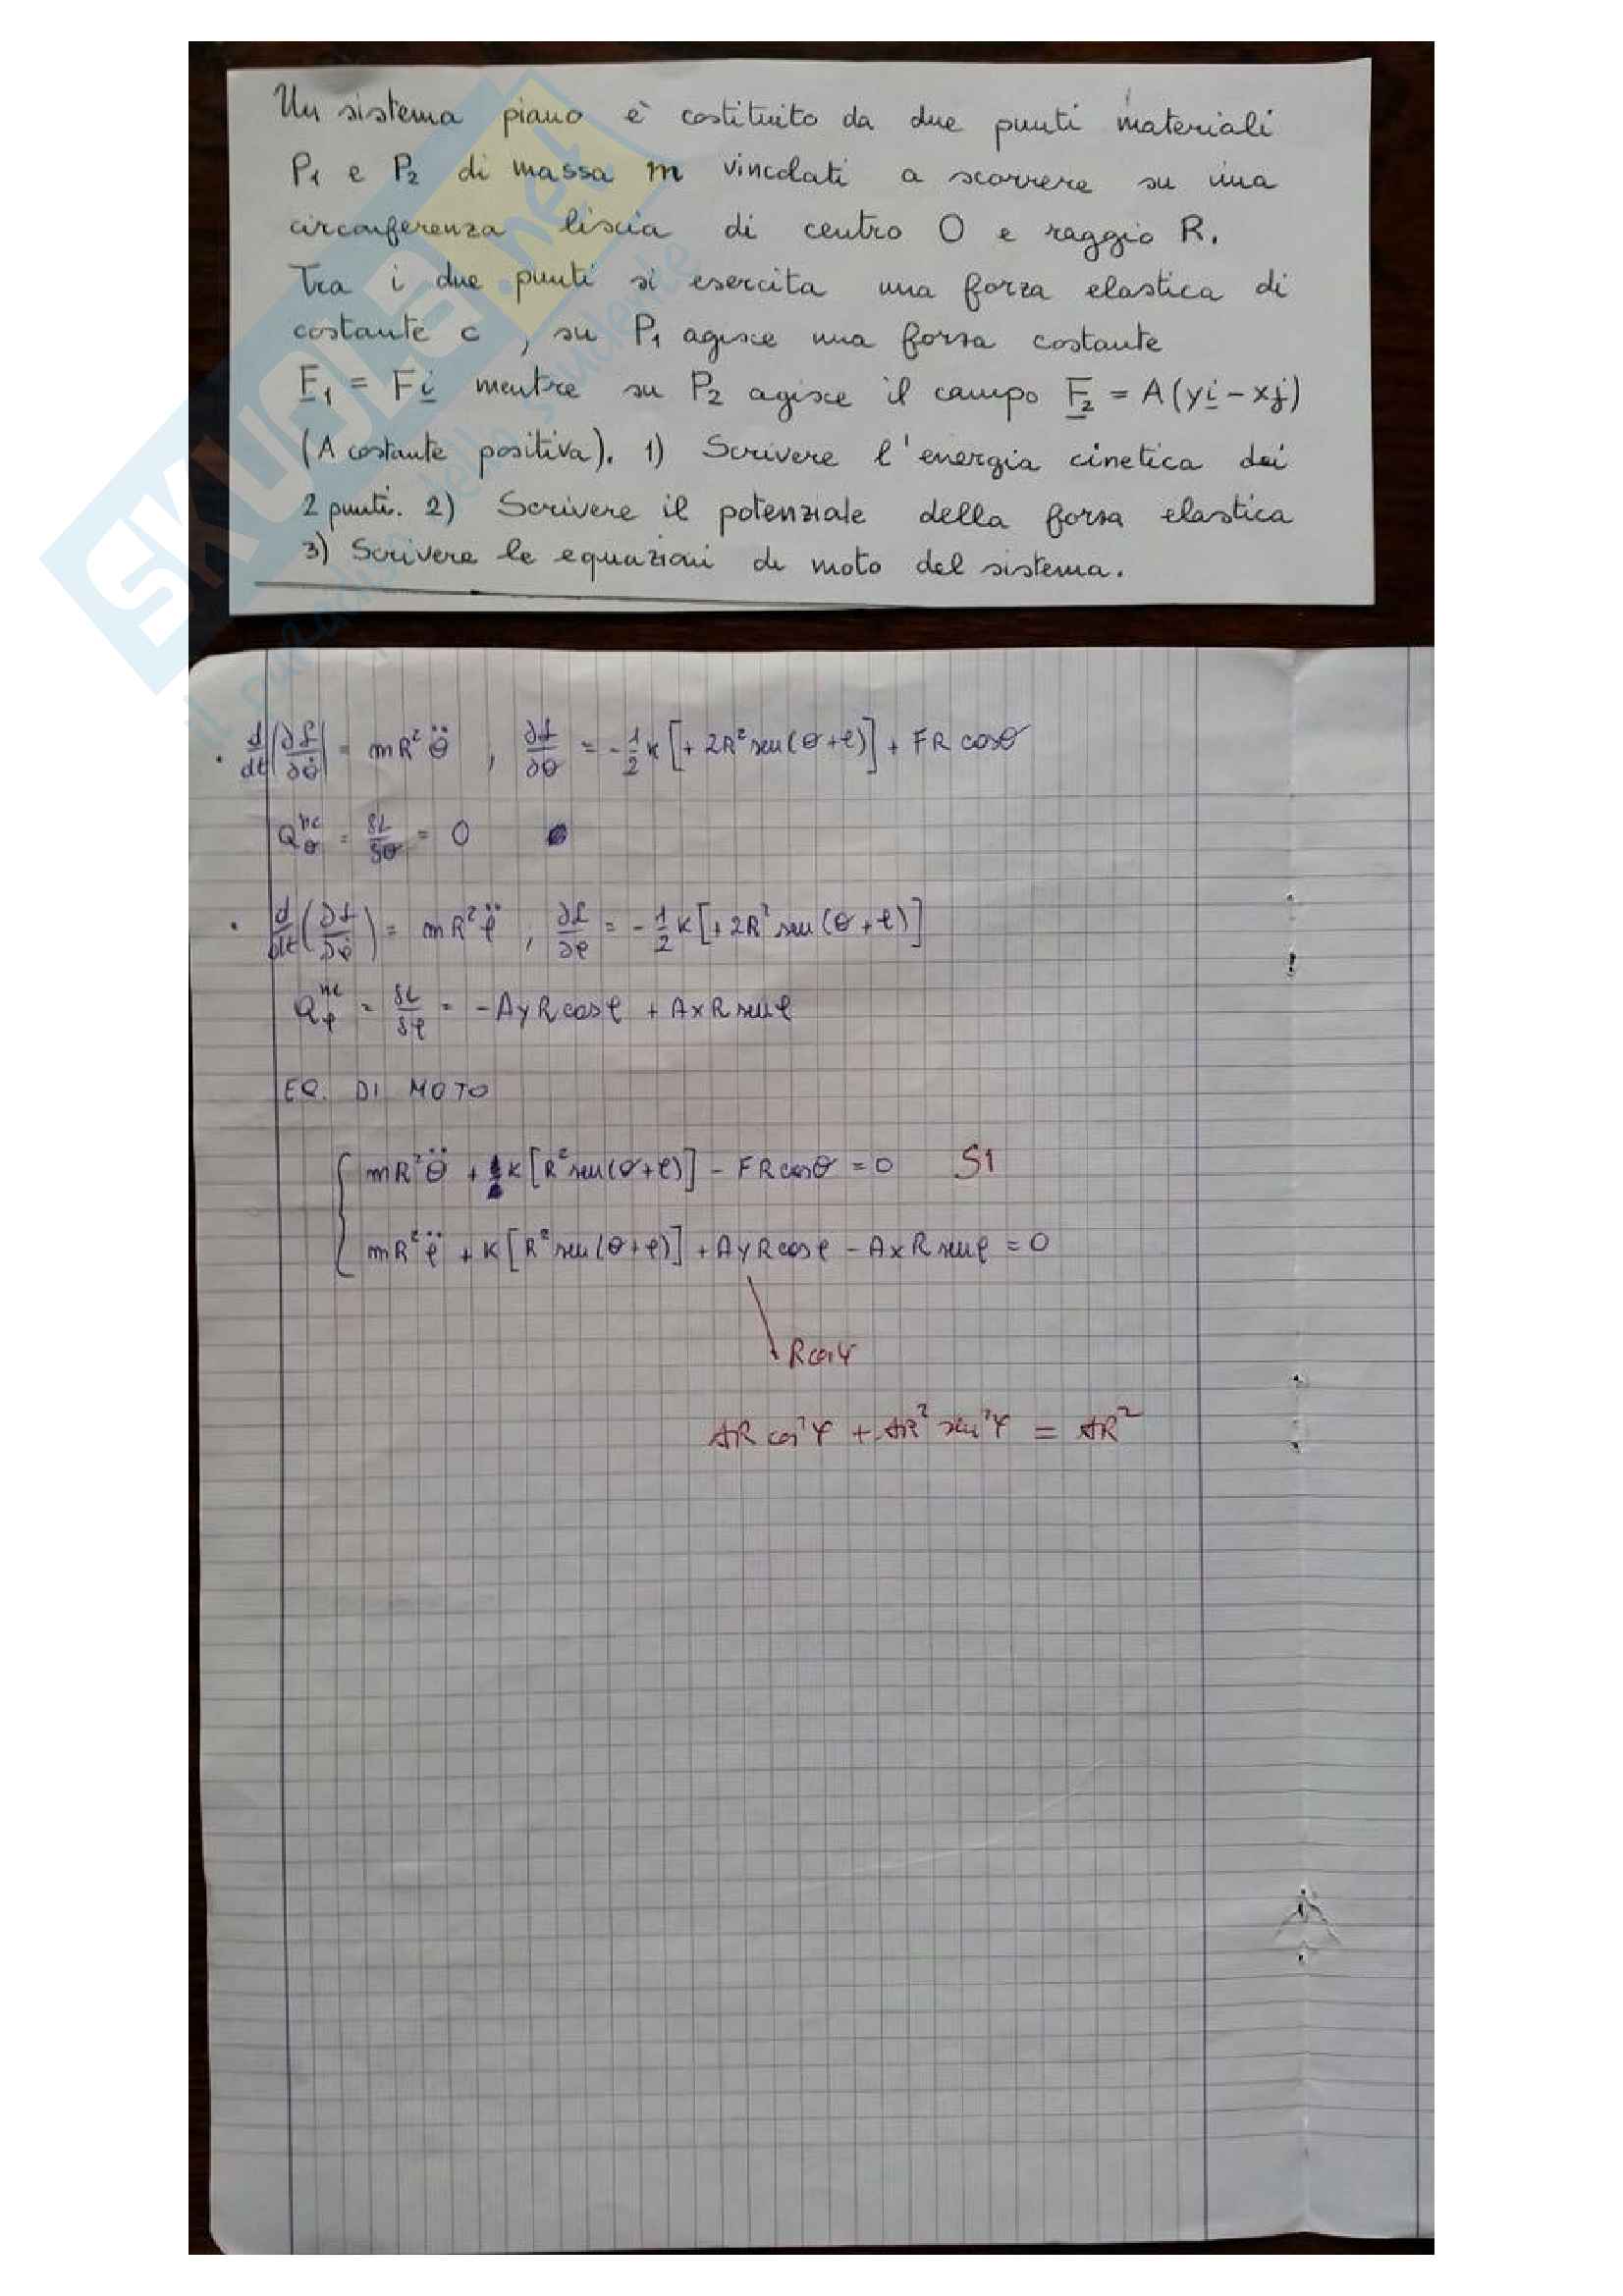 Un sistema piano è costituito da due punti materiali
P₁ e P₂ di massa m vincolati a scorrere su una
circonferenza liscia di centro O e raggio R.
Tra i due punti si esercita una forza elastica di
costante c, su P₁ agisce una forza costante
F₁ = Fi mentre su P₂ agisce il campo F₂ = A(yi - xj)
(A costante positiva). 1) Scrivere l'energia cinetica dei
2 punti. 2) Scrivere il potenziale della forza elastica
3) Scrivere le equazioni di moto del sistema.
SKUOLA.net
il paradiso dello studente
• d/dt (∂L/∂θ̇) = mR²θ̈ , ∂L/∂θ = -1/2 k [+ 2R² sen(θ+φ)] + FR cosθ
Q_θ^nc = δL/δθ = 0
• d/dt (∂L/∂φ̇) = mR²φ̈ , ∂L/∂φ = -1/2 k [+2R² sen(θ+φ)]
Q_φ^nc = δL/δφ = -AyRcosφ + AxRsenφ
EQ. DI MOTO
mR²θ̈ + k[R² sen(θ+φ)] - FRcosθ = 0 SI
mR²φ̈ + k[R² sen(θ+φ)] + AyRcosφ - AxRsenφ = 0
Rcosφ
AR cos²φ + AR² sen²φ = AR²